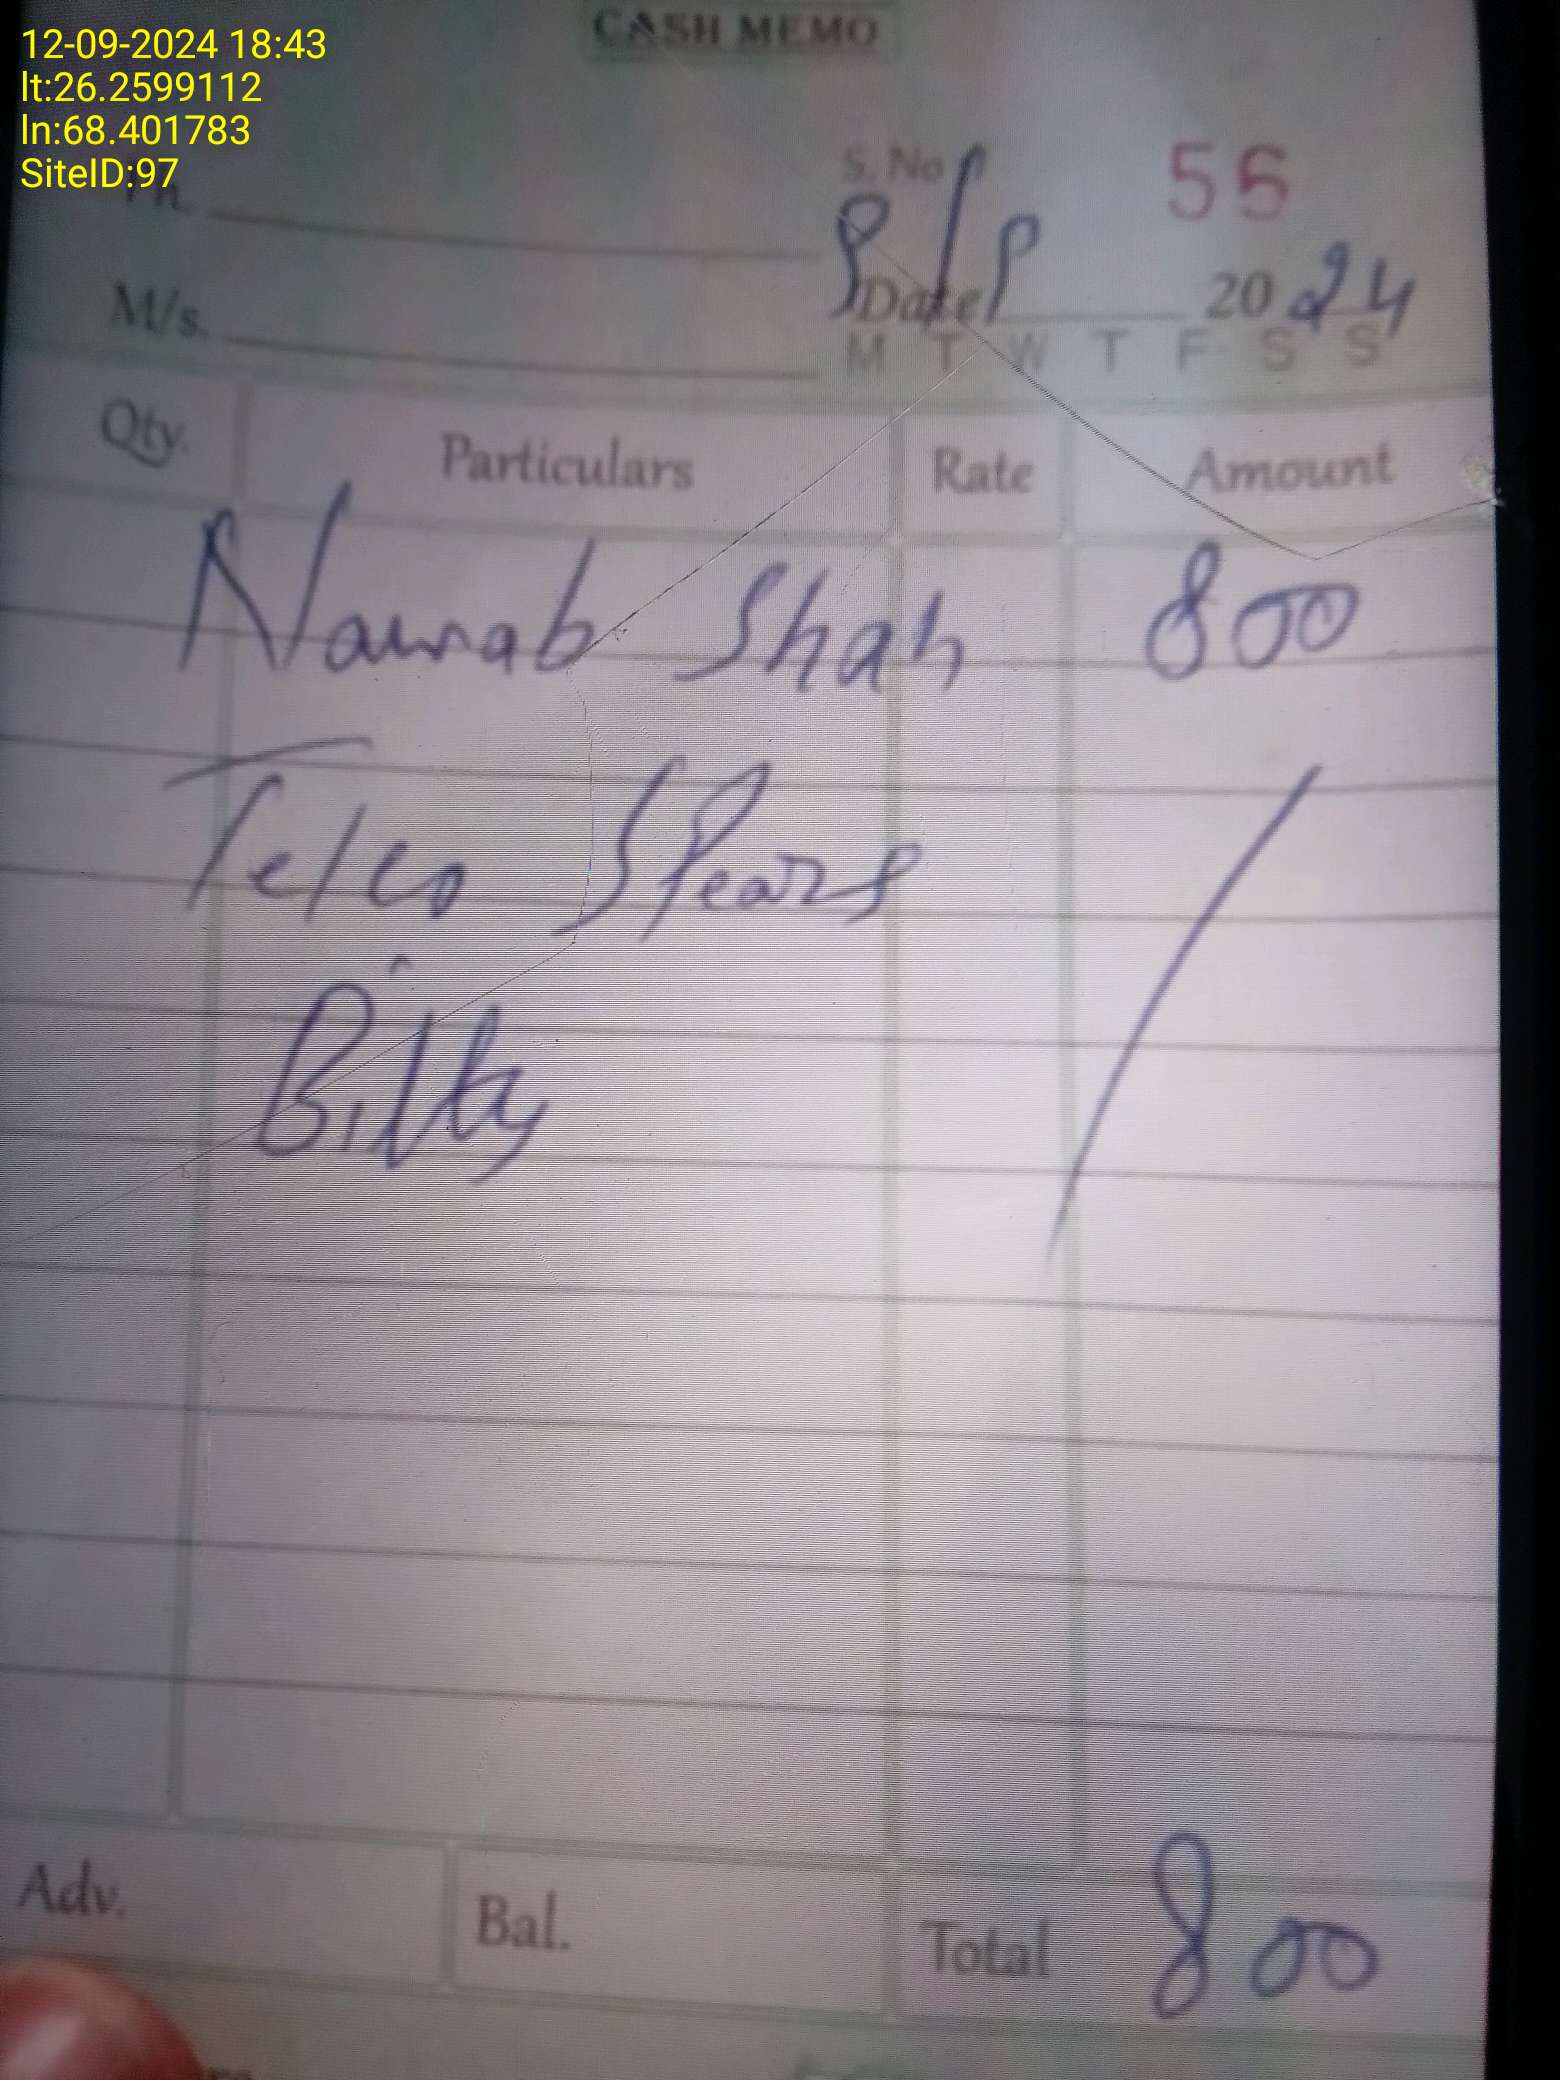 CASH MEMO
12-09-2024 18:43
lt:26.2599112
ln:68.401783
SiteID:97
S. No 56
Ph.
Date 9/9 2024
M/s.
M T W T F S S
Qty. Particulars Rate Amount
Nawab Shah 800
Telco Spears
Bilty
Adv. Bal. Total 800